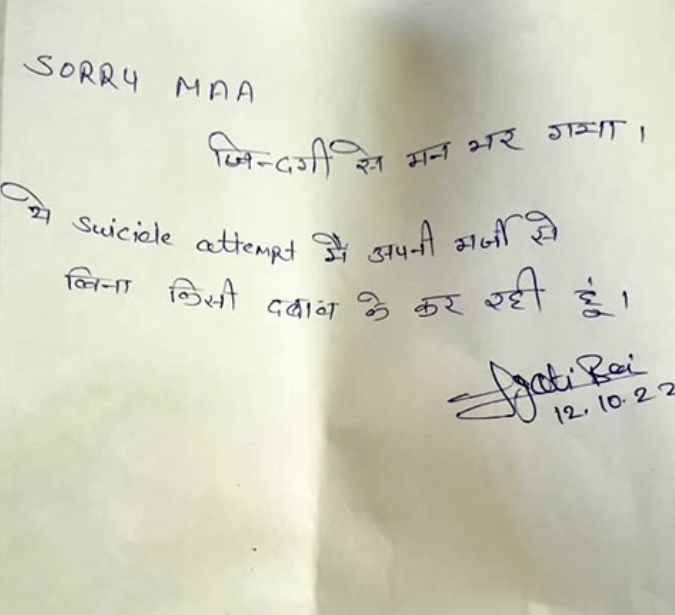 SORRY MAA
जिन्दगी से मन भर गया।
ये suicide attempt मैं अपनी मर्जी से
बिना किसी दबाव के कर रही हूं।
Jyoti Bai
12.10.22